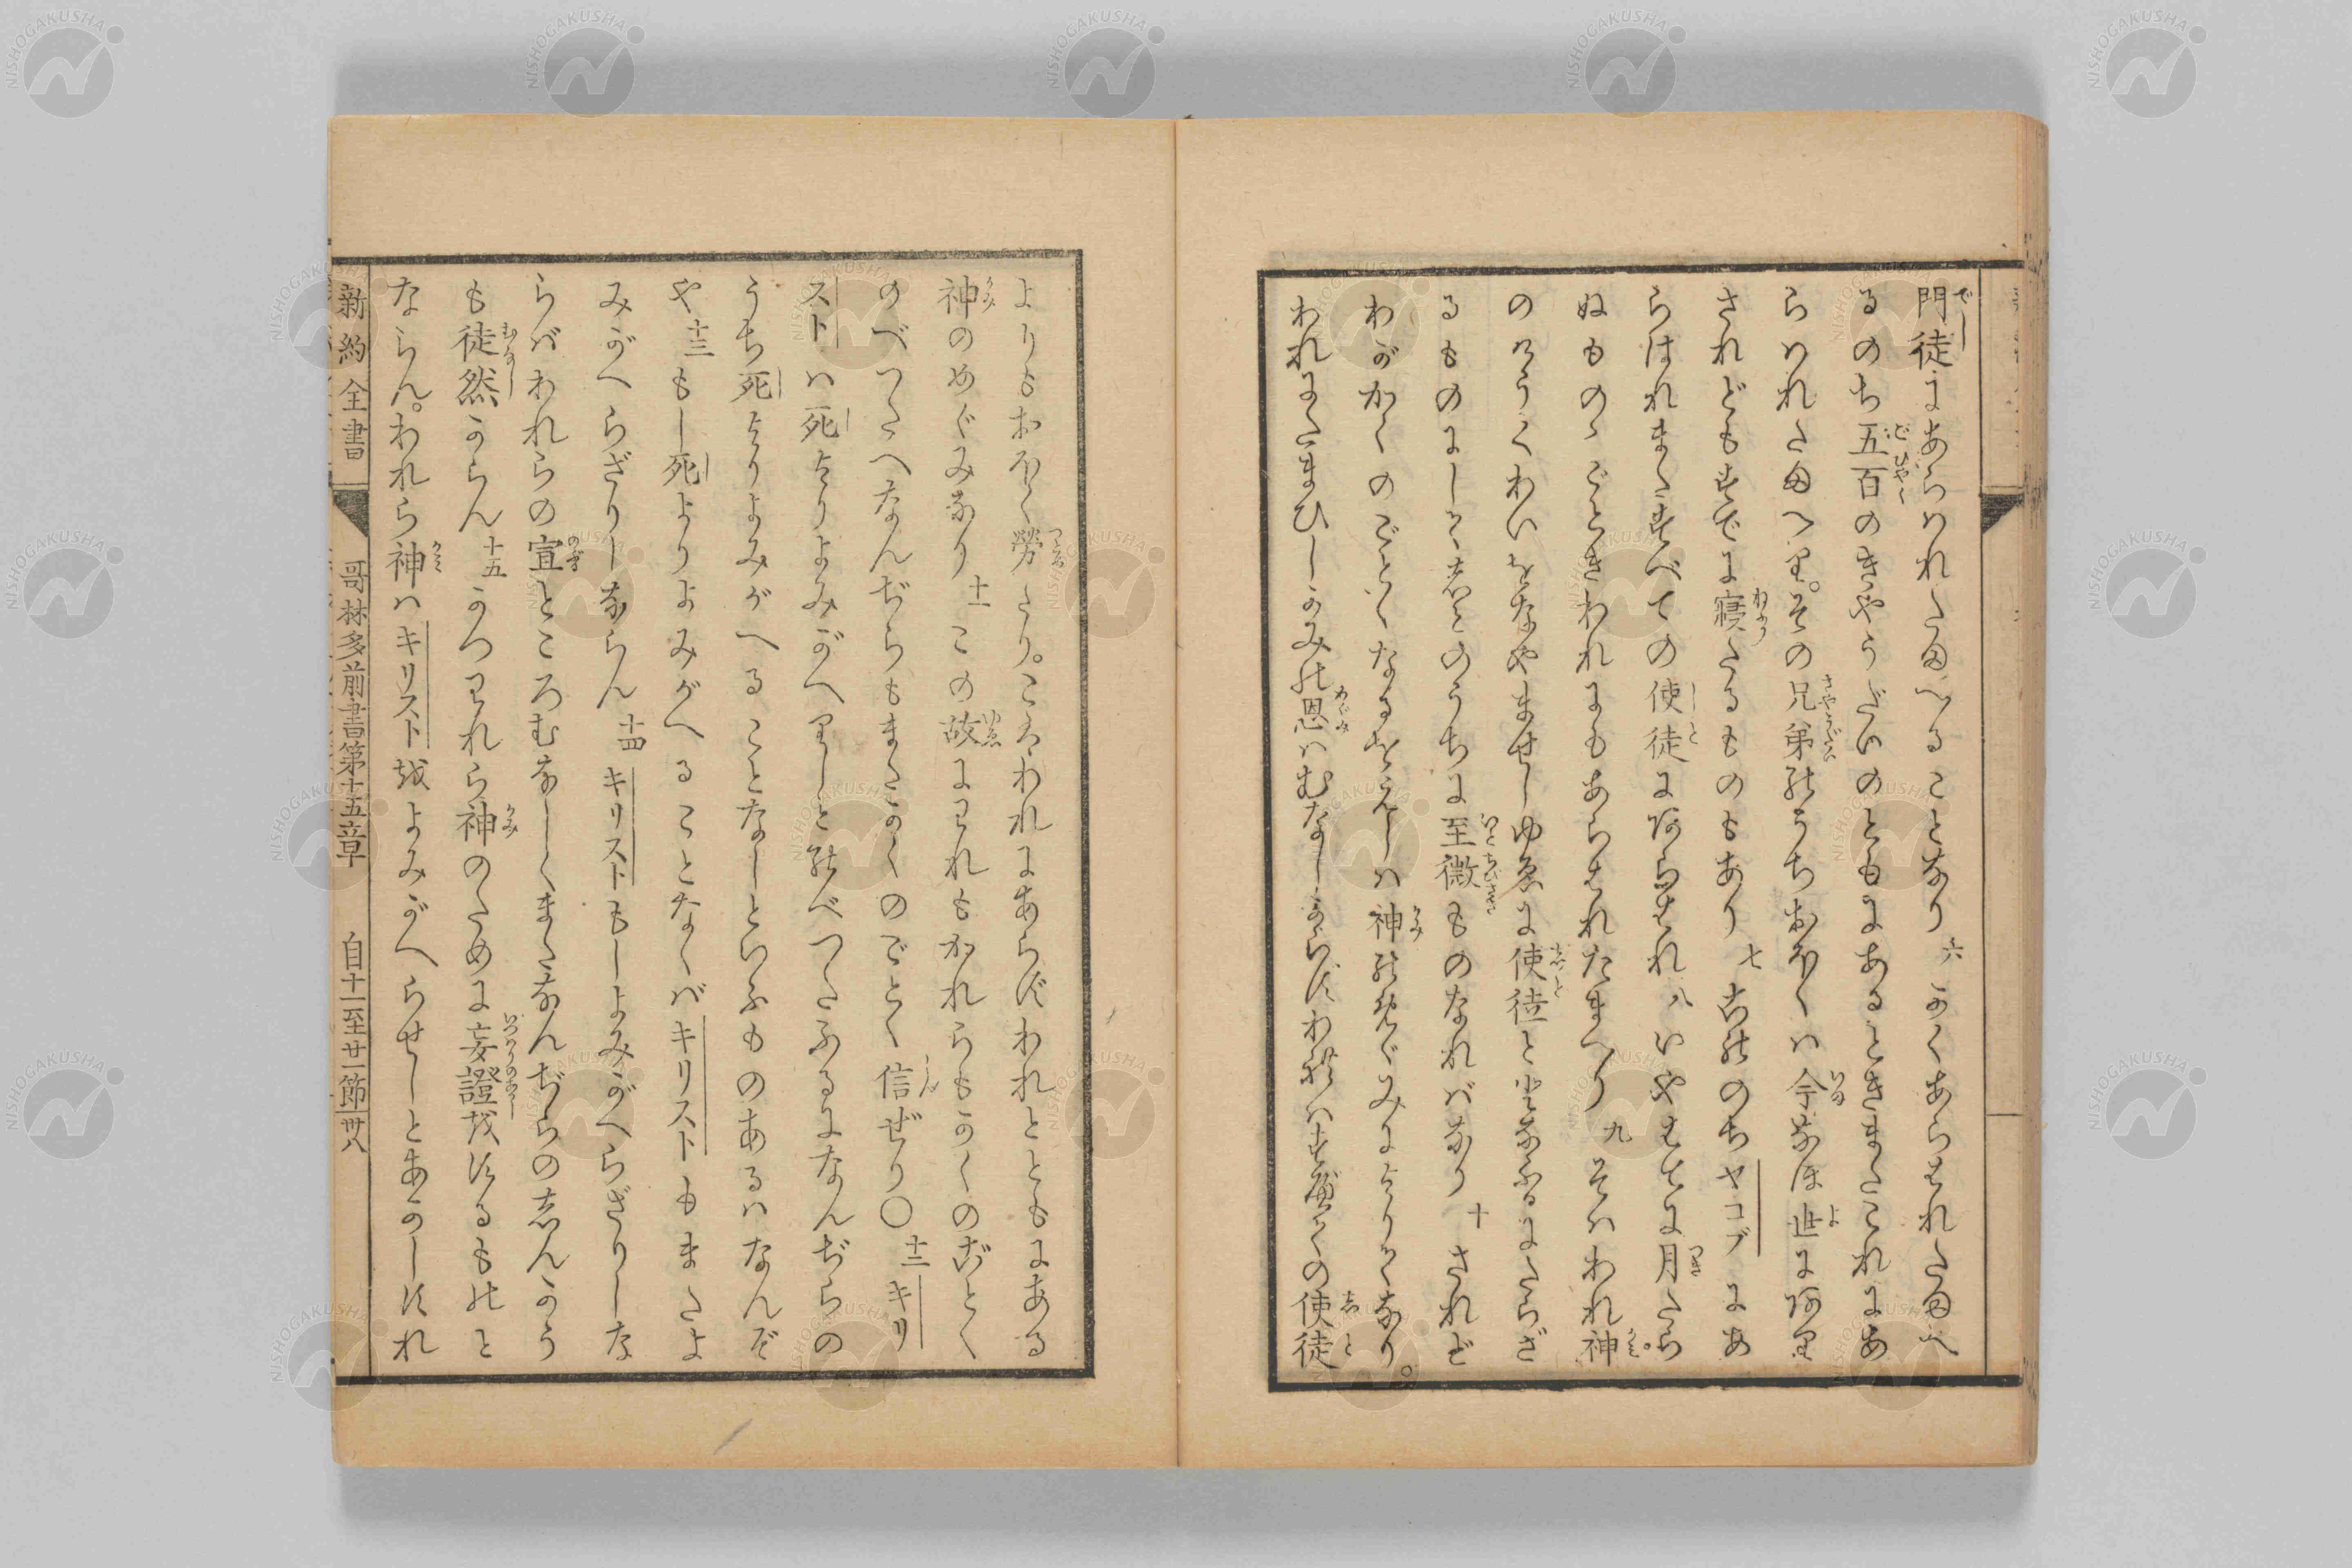 門徒にあらハれたまへることなり 六 かくあらはれたまへ
るのち五百のきやうだいのともにあるときまたこれにあ
らハれたまへり。その兄弟のうちおほくハ今なほ世にあり
されどもすでに寝たるものもあり 七 そののちヤコブにあ
らはれまたすべての使徒にあらはれ 八 いやはてに月たら
ぬものゝごときわれにもあらはれたまへり 九 そハわれ神
のけうくわいをなやませしゆゑに使徒ととなふるにたらざ
るものにして志とのうちに至微ものなればなり 十 されど
わがかくのごとくなるをえしハ神のめぐみによりてなり。
われにたまひしかみの恩ハむなしからずわれハすべての使徒
よりもおほく勞たり。こハわれにあらずわれとともにある
神のめぐみなり 十一 この故にわれもかれらもかくのごとく
のべつたへなんぢらもまたかくのごとく信ぜり〇 十二 キリ
ストハ死よりよみがへりしとのべつたふるになんぢらの
うち死よりよみがへることなしといふものあるハなんぞ
や 十三 もし死よりよみがへることなくバキリストもまたよ
みがへらざりしならん 十四 キリストもしよみがへらざりしな
らバわれらの宣ところむなしくまたなんぢらの志んかう
も徒然からん 十五 かつわれら神のために妄證をするものと
ならん。われら神ハキリストをよみがへらせしとあかしすれ
新約全書 哥林多前書第十五章 自十一至廿一節 卅八
NISHOGAKUSHA